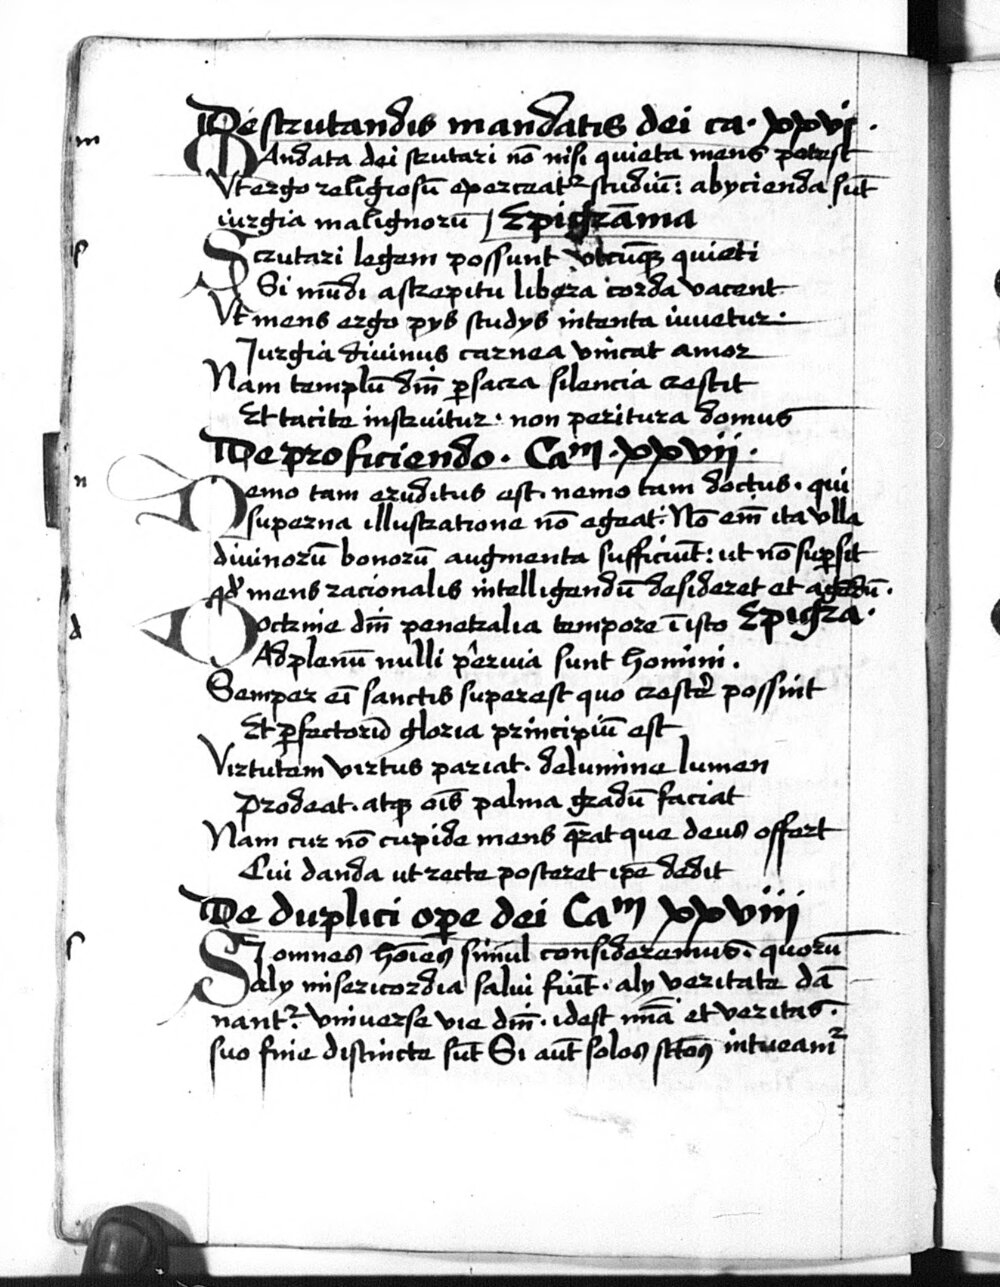 De scrutandis mandatis dei ca. xxvj.
m
MAndata dei scrutari nō nisi quieta mens potest
Vt ergo religiosū exerceatᵘʳ studiū: abycienda sūt
iurgia malignorū Epigrāma
s
Scrutari legem possunt utcūqꝫ quieti
Si mūdi a strepitu libera corda vacent
Vt mens ergo pys studys intenta iuuetur.
Jurgia diuinus carnea vincat amor
Nam templū dn̄i ꝑ sacra silencia crescit
Et tacite instruitur. non peritura domus
De proficiendo. Caᵐ. xxvii.
n
Nemo tam eruditus est. nemo tam doctus. qui
superna illustratione nō egeat. Nō em̄ ita vlla
diuinorū bonorū augmenta sufficiūt: ut nō suꝑsit
qd̓ mens racionalis intelligendū desideret et agēdū.
d
Doctrine dn̄i penetralia tempore ī isto Epigra.
Ad plenū nulli peruia sunt homini.
Semper eī sanctis superest quo crescere possint
Et ꝑfectorū gloria principiū est
Virtutem virtus pariat. de lumine lumen
prodeat. atqꝫ oīs palma gradū faciat
Nam cur nō cupide mens q̄rat que deus offert
Cui danda ut recte posceret ip̄e dedit
De duplici oꝑe dei Caᵐ xxviii
s
SJ omnes hoīes simul consideremus. quorū
aly misericordia salui fiūt. aly veritate dā
nantᵘʳ. vniuerse vie dn̄i. idest mīa et veritas.
suo fine distincte sūt Si aūt solos sc̄tos intueamʳ